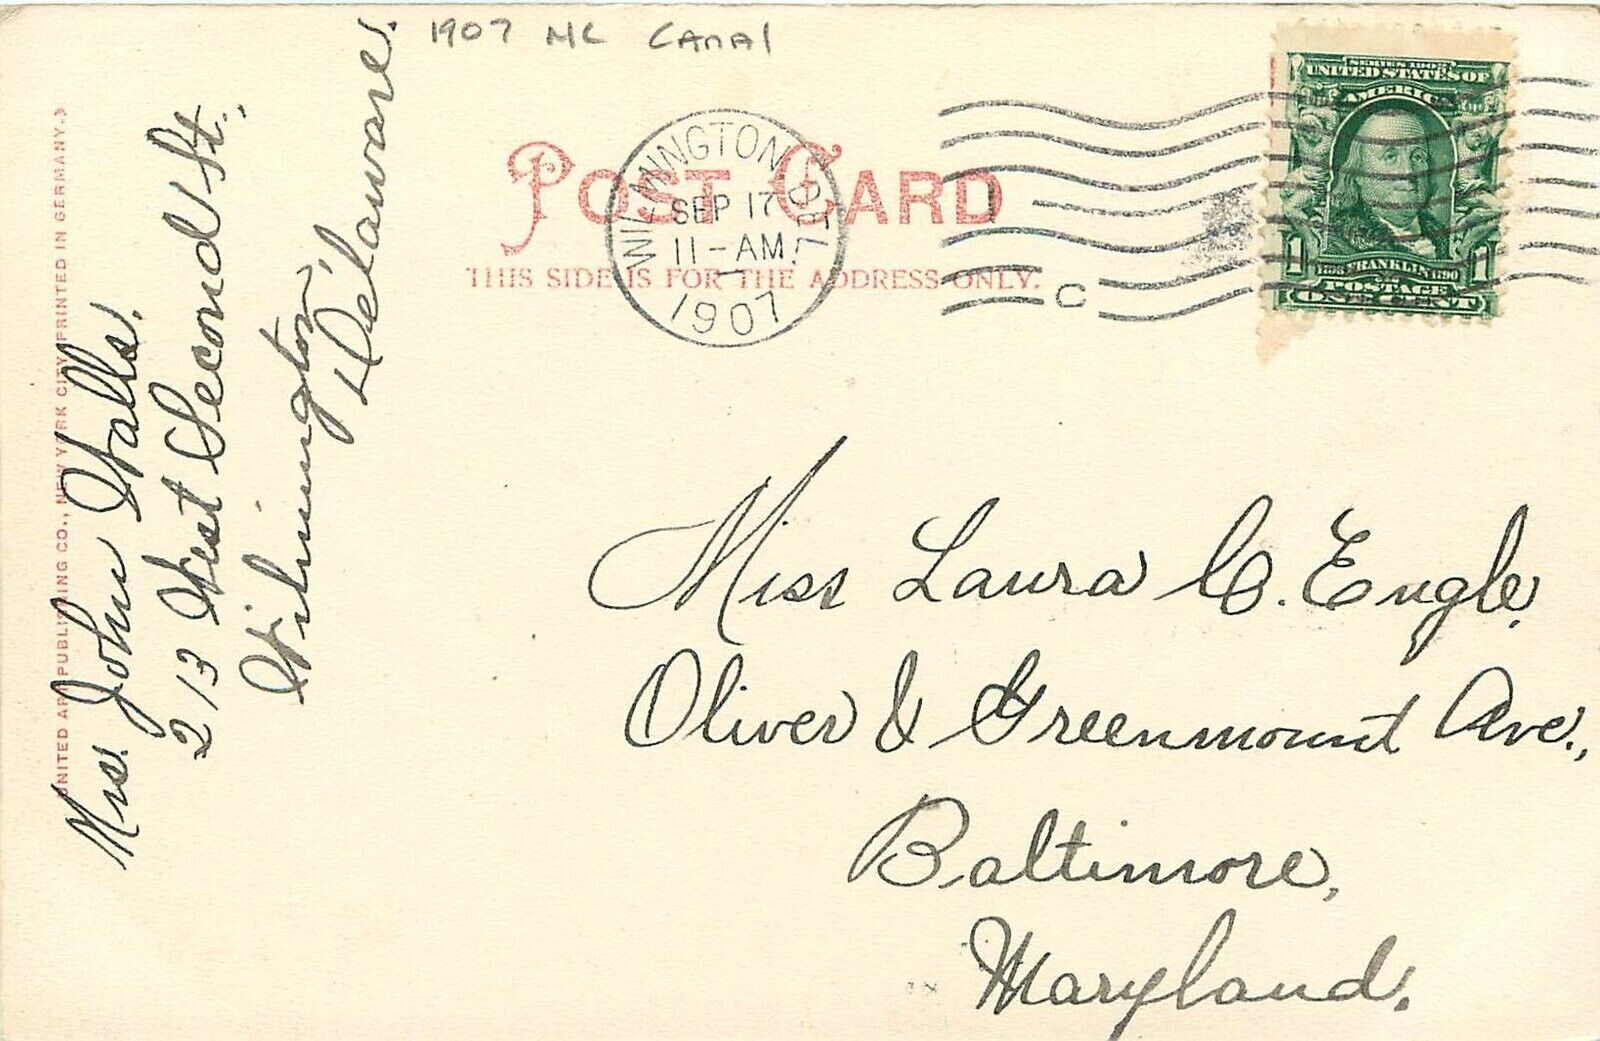 1907 NC Canal
POST CARD
THIS SIDE IS FOR THE ADDRESS ONLY.
WILMINGTON, DEL.
SEP 17
11-AM
1907
C
SERIES 1902
UNITED STATES OF
AMERICA
1
1
1706 FRANKLIN 1790
POSTAGE
ONE CENT
UNITED ART PUBLISHING CO., NEW YORK CITY (PRINTED IN GERMANY.)
Mrs. John Walls.
213 West Second St.,
Wilmington,
Delaware.
Miss Laura C. Engle,
Oliver & Greenmount Ave.,
Baltimore,
Maryland.